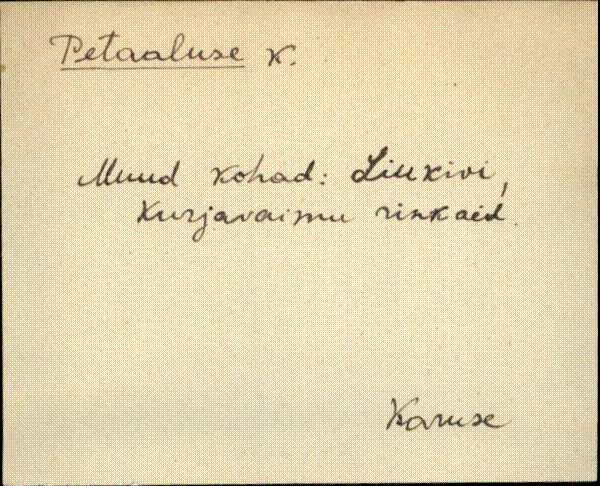 Petaaluse k.
Muud kohad: Liukivi,
Kurjavaimu rinkaid.
Karuse